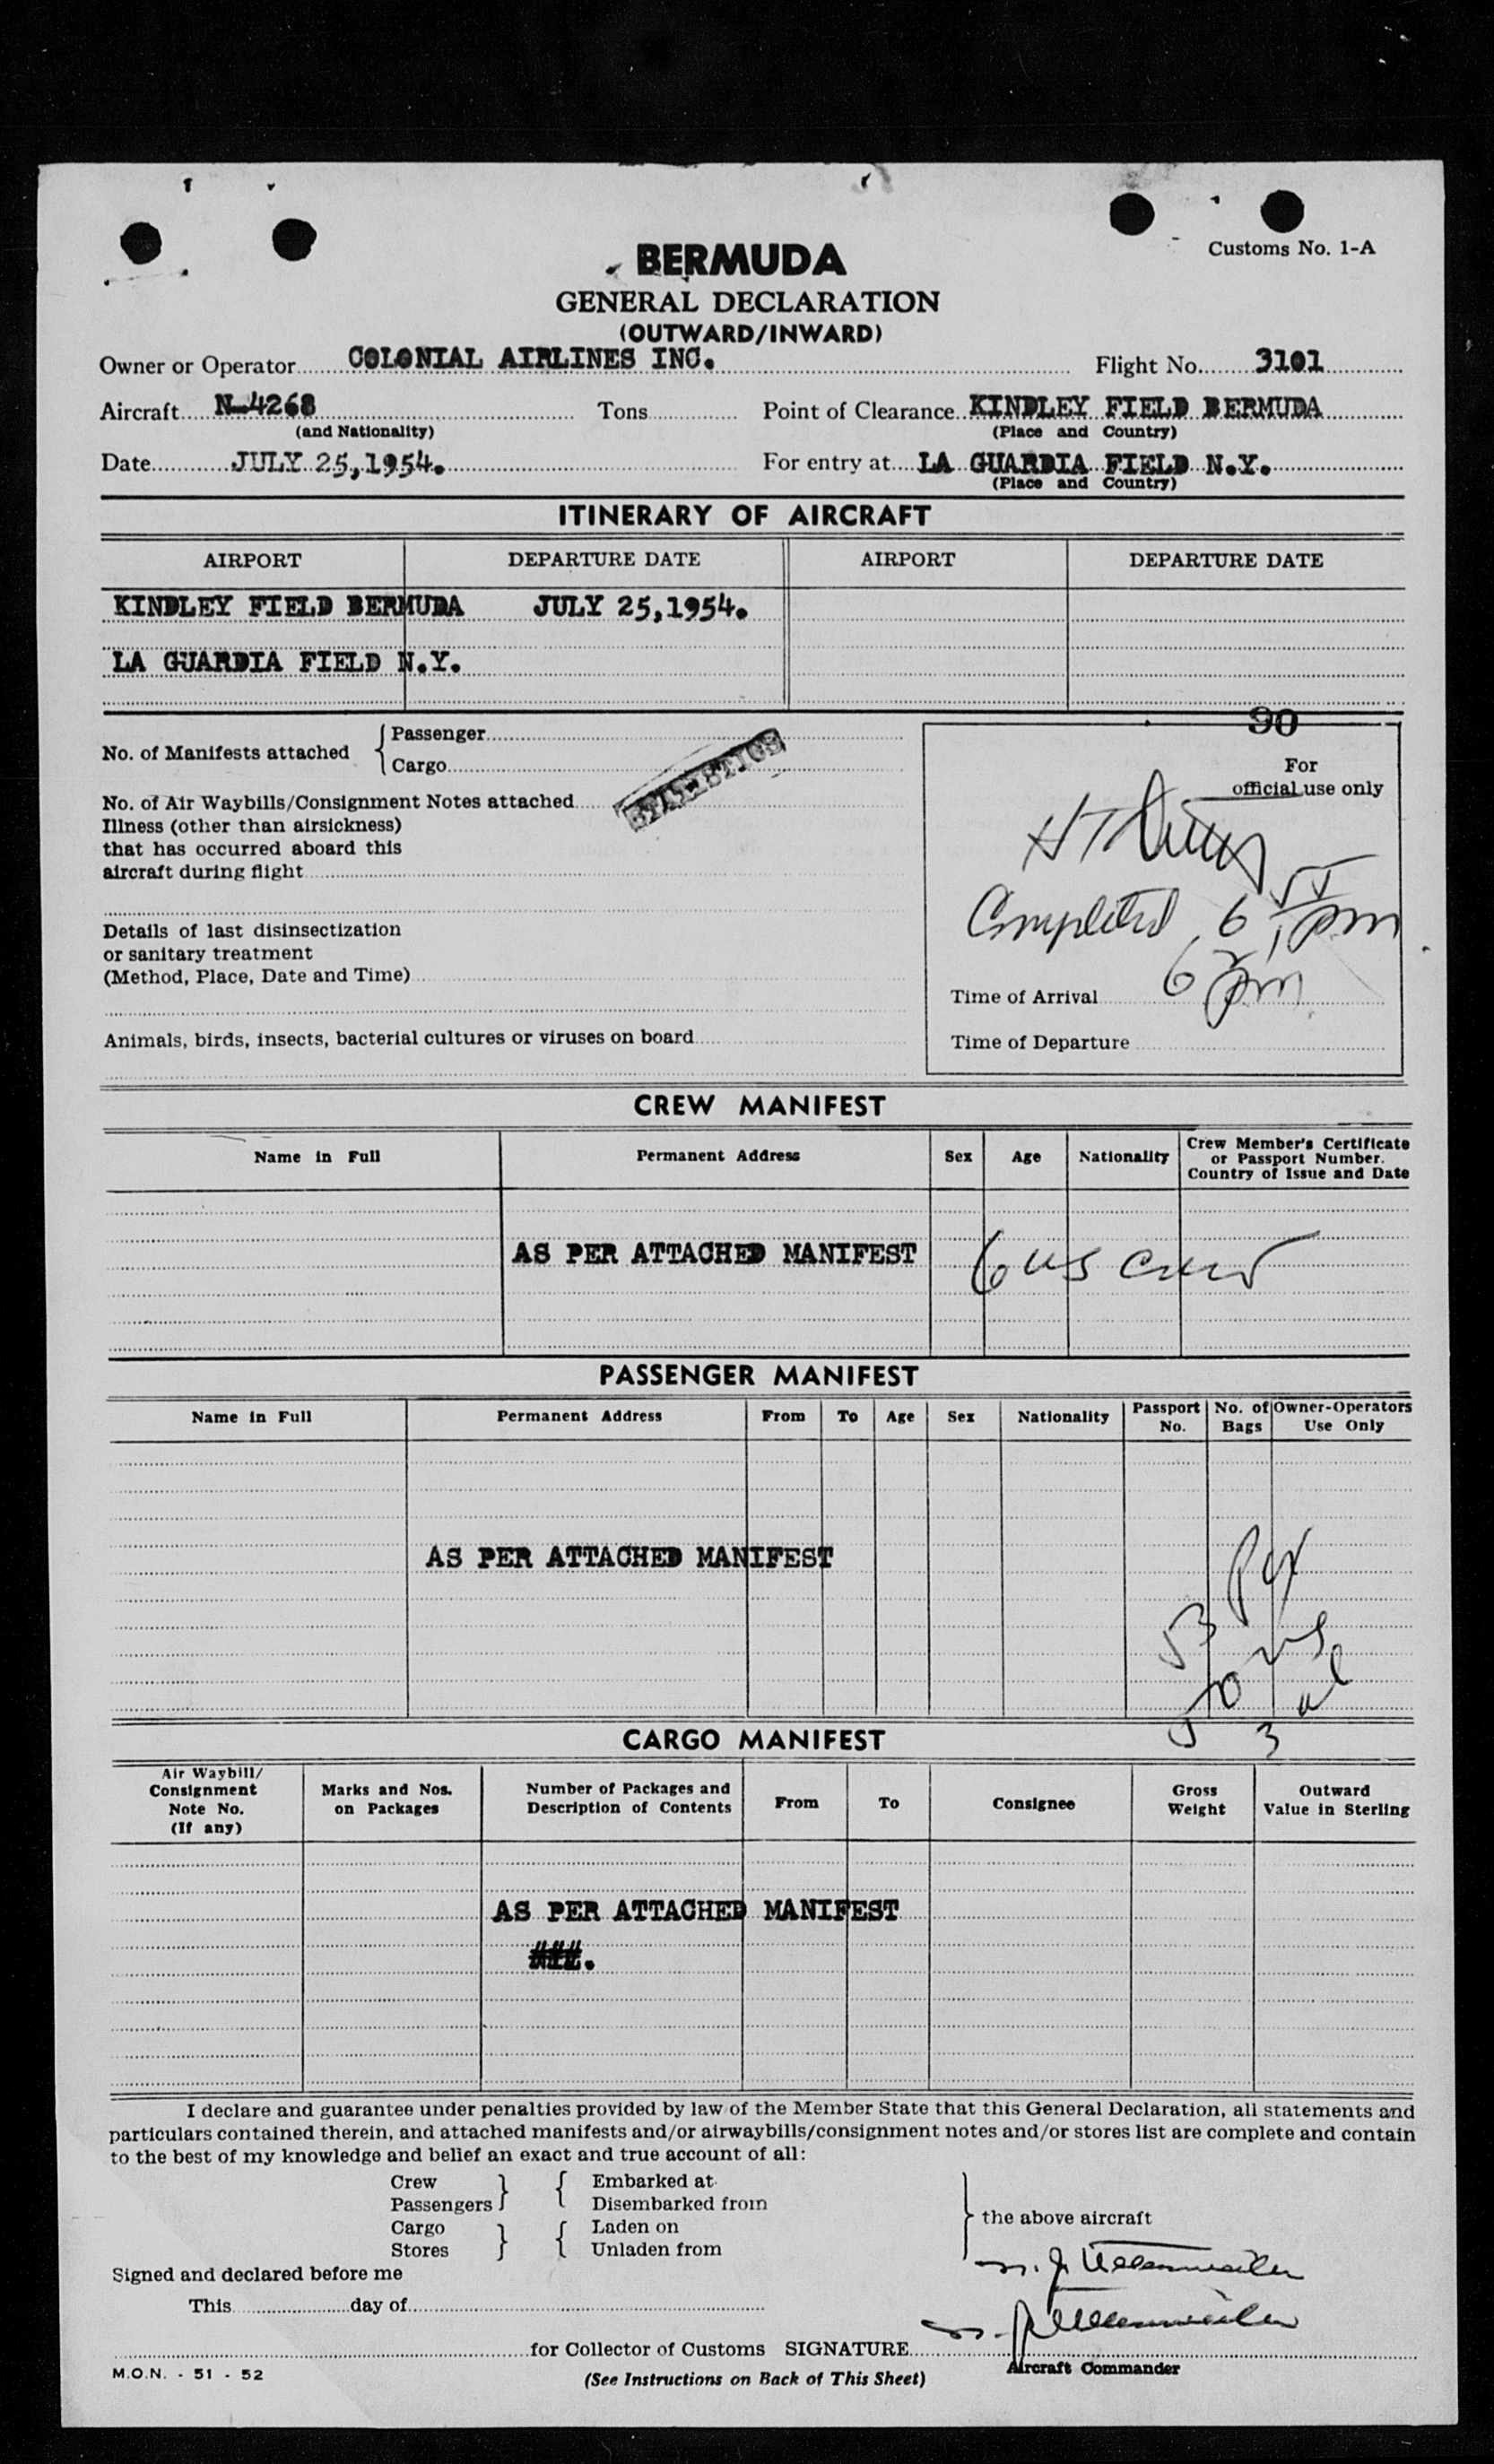 Customs No. 1-A
BERMUDA
GENERAL DECLARATION
(OUTWARD/INWARD)
Owner or Operator COLONIAL AIRLINES INC. Flight No. 3101
Aircraft N-4268 Tons Point of Clearance KINDLEY FIELD BERMUDA
(and Nationality) (Place and Country)
Date JULY 25,1954. For entry at LA GUARDIA FIELD N.Y.
(Place and Country)
ITINERARY OF AIRCRAFT
AIRPORT DEPARTURE DATE AIRPORT DEPARTURE DATE
KINDLEY FIELD BERMUDA JULY 25,1954.
LA GUARDIA FIELD N.Y.
90
No. of Manifests attached Passenger
Cargo
For
official use only
No. of Air Waybills/Consignment Notes attached
STATISTICS
Illness (other than airsickness)
that has occurred aboard this
aircraft during flight
Completed 6 pm
Details of last disinsectization
or sanitary treatment
(Method, Place, Date and Time)
Time of Arrival 6 pm
Animals, birds, insects, bacterial cultures or viruses on board
Time of Departure
CREW MANIFEST
Name in Full Permanent Address Sex Age Nationality Crew Member's Certificate
or Passport Number.
Country of Issue and Date
AS PER ATTACHED MANIFEST 6 US Crew
PASSENGER MANIFEST
Name in Full Permanent Address From To Age Sex Nationality Passport No. No. of Bags Owner-Operators Use Only
AS PER ATTACHED MANIFEST
53 Pax
50 US
3 al
CARGO MANIFEST
Air Waybill/
Consignment
Note No.
(If any)
Marks and Nos.
on Packages
Number of Packages and
Description of Contents
From To Consignee
Gross
Weight
Outward
Value in Sterling
AS PER ATTACHED MANIFEST
###.
I declare and guarantee under penalties provided by law of the Member State that this General Declaration, all statements and
particulars contained therein, and attached manifests and/or airwaybills/consignment notes and/or stores list are complete and contain
to the best of my knowledge and belief an exact and true account of all:
Crew Embarked at
Passengers Disembarked from
Cargo Laden on the above aircraft
Stores Unladen from
Signed and declared before me
This day of
for Collector of Customs SIGNATURE
Aircraft Commander
M.O.N. - 51 - 52
(See Instructions on Back of This Sheet)